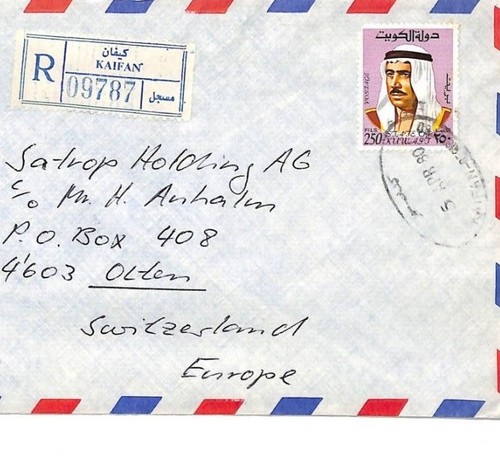 كيفان
R KAIFAN
09787 مسجل
دولة الكويت
POSTAGE
FILS
250
STATE OF KUWAIT
٢٥٠
5 APR 80
Satrop Holding AG
c/o Mr. H. Anhalm
P.O. Box 408
4603 Olten
Switzerland
Europe